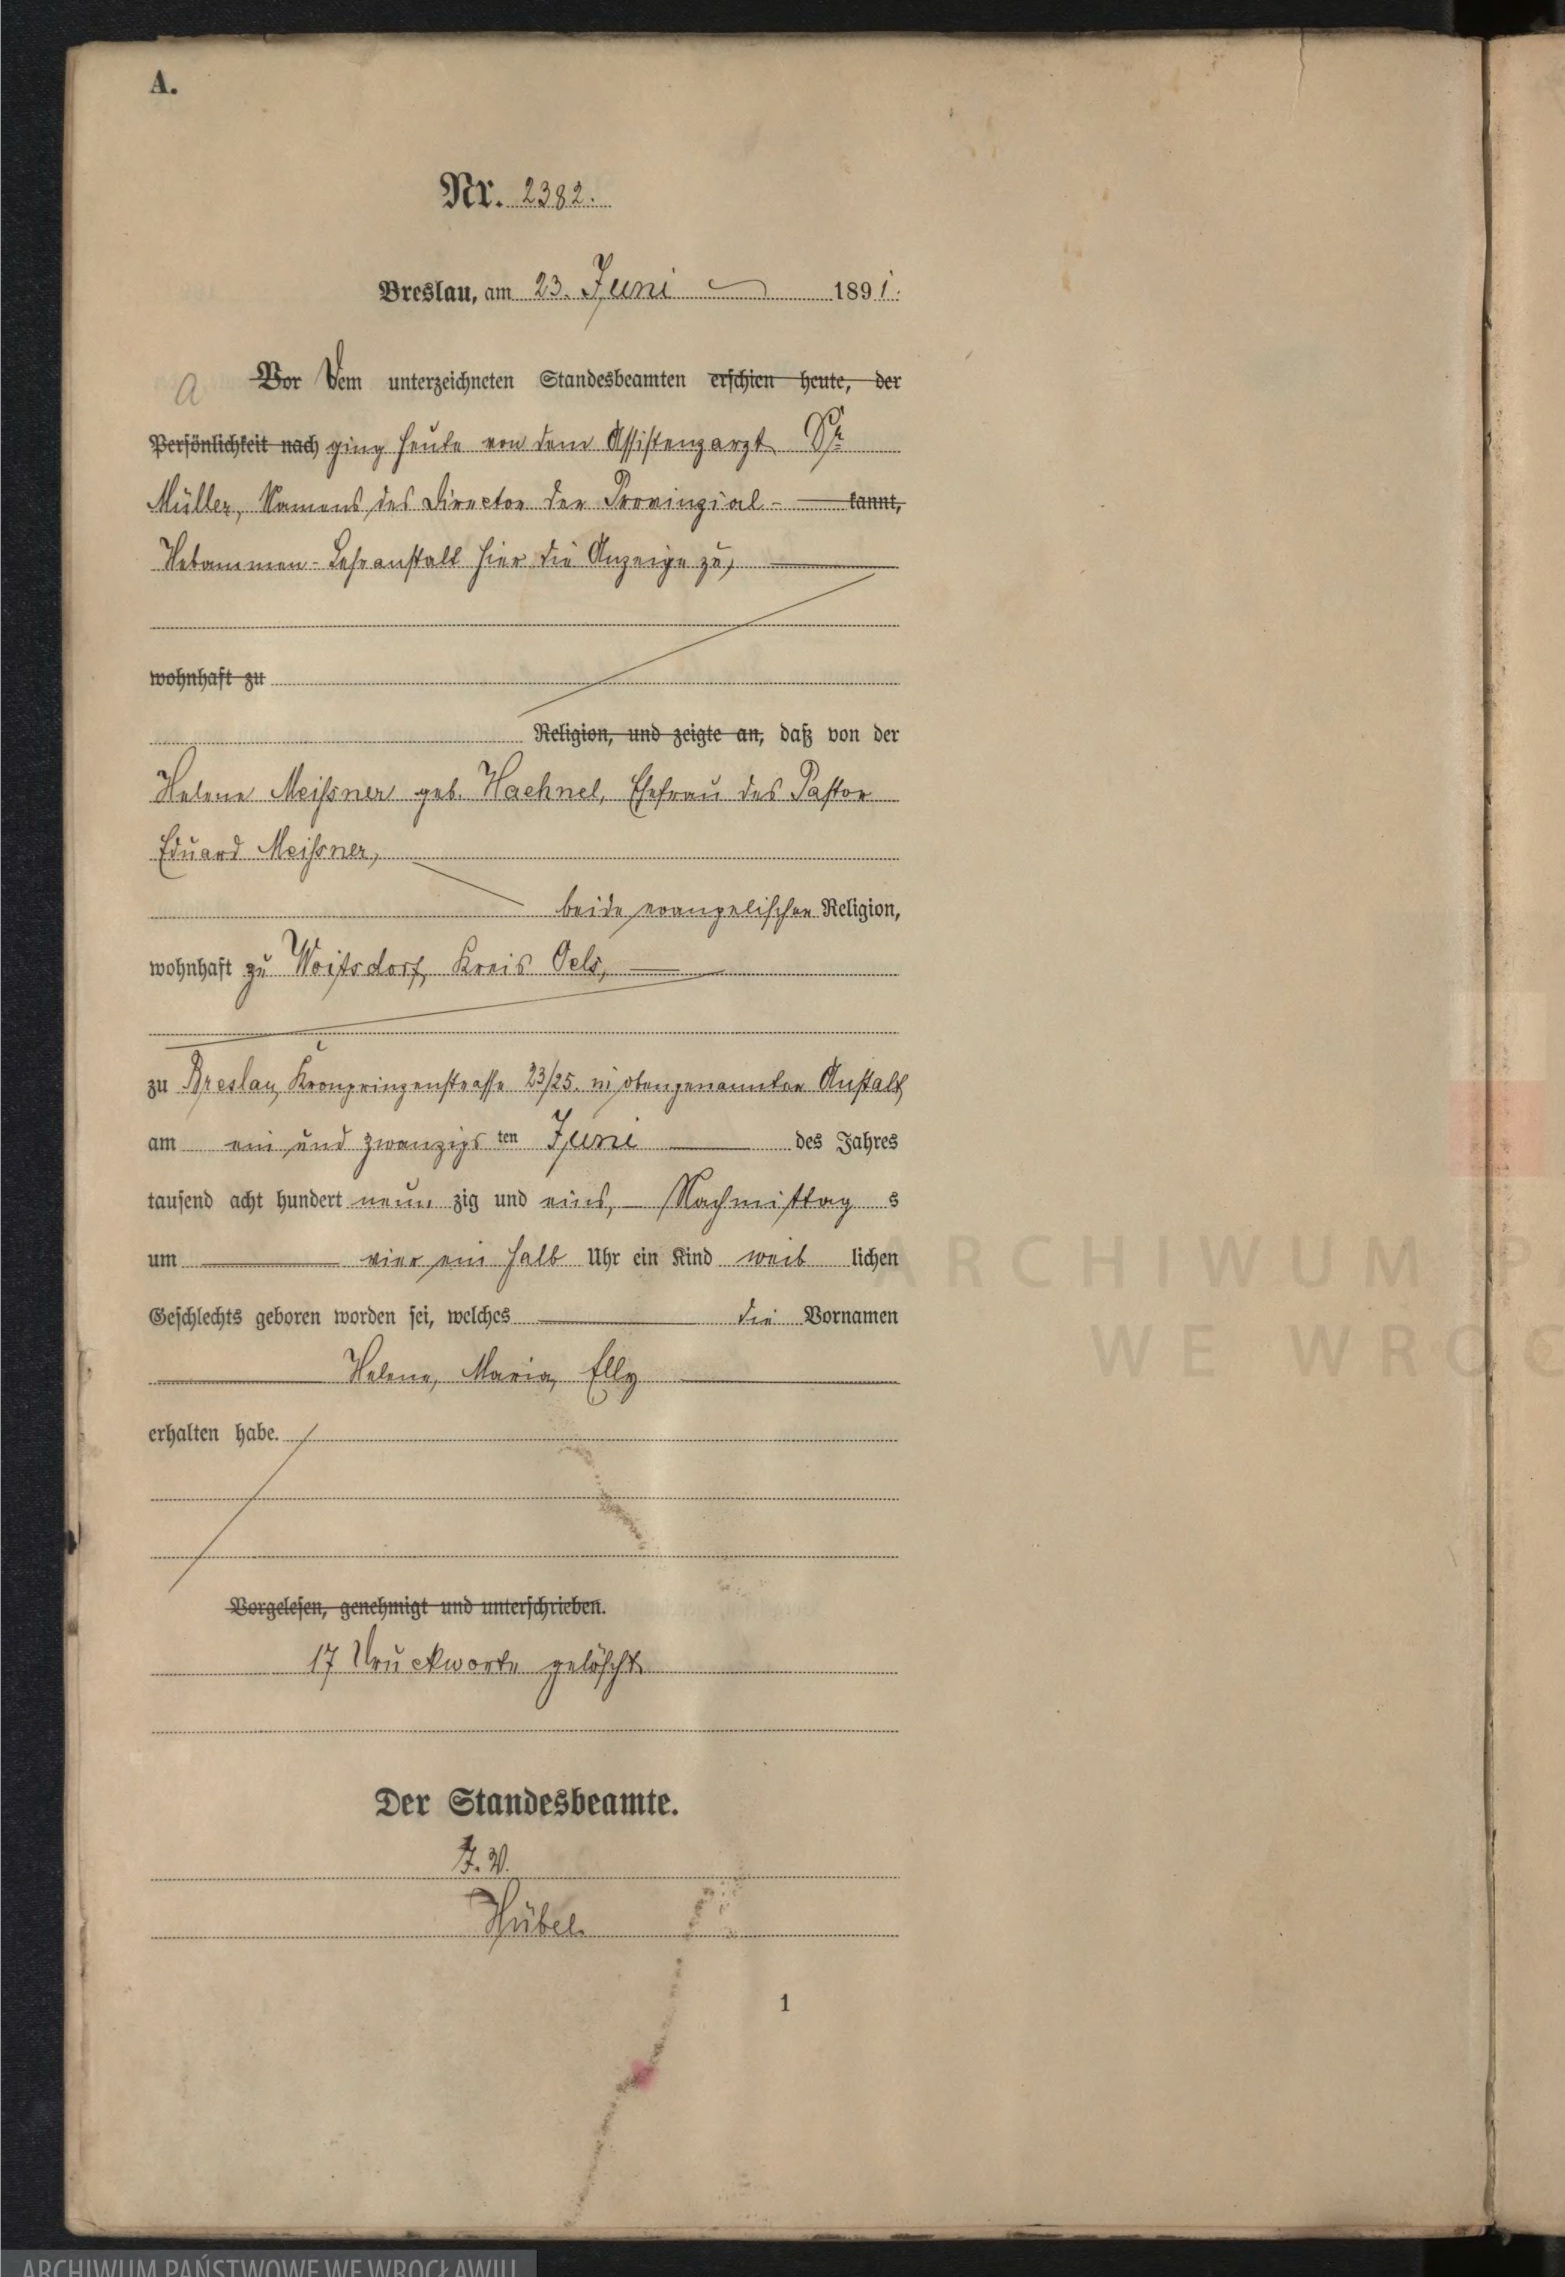 A.
Nr. 2382.
Breslau, am 23. Juni 1891.
a Vor Dem unterzeichneten Standesbeamten erschien heute, der
Persönlichkeit nach ging heute von dem Assistenzarzt Dr
Müller, Namens des Director der Provinzial- kannt,
Hebammen-Lehranstalt hier die Anzeige zu,
wohnhaft zu
Religion, und zeigte an, daß von der
Helene Meißner geb. Haehnel, Ehefrau des Pastor
Eduard Meißner,
beide evangelischer Religion,
wohnhaft zu Woitsdorf, Kreis Oels,
zu Breslau, Kronprinzenstrasse 23/25. in obengenannter Anstalt
am ein und zwanzigs ten Juni des Jahres
tausend acht hundert neun zig und eins, Nachmittag s
um vier ein halb Uhr ein Kind weib lichen
Geschlechts geboren worden sei, welches die Vornamen
Helene, Maria, Elly
erhalten habe.
Vorgelesen, genehmigt und unterschrieben.
17 Druckworte gelöscht
Der Standesbeamte.
J. V.
Hübel.
1
ARCHIWUM P
WE WROC
ARCHIWUM PAŃSTWOWE WE WROCŁAWIU